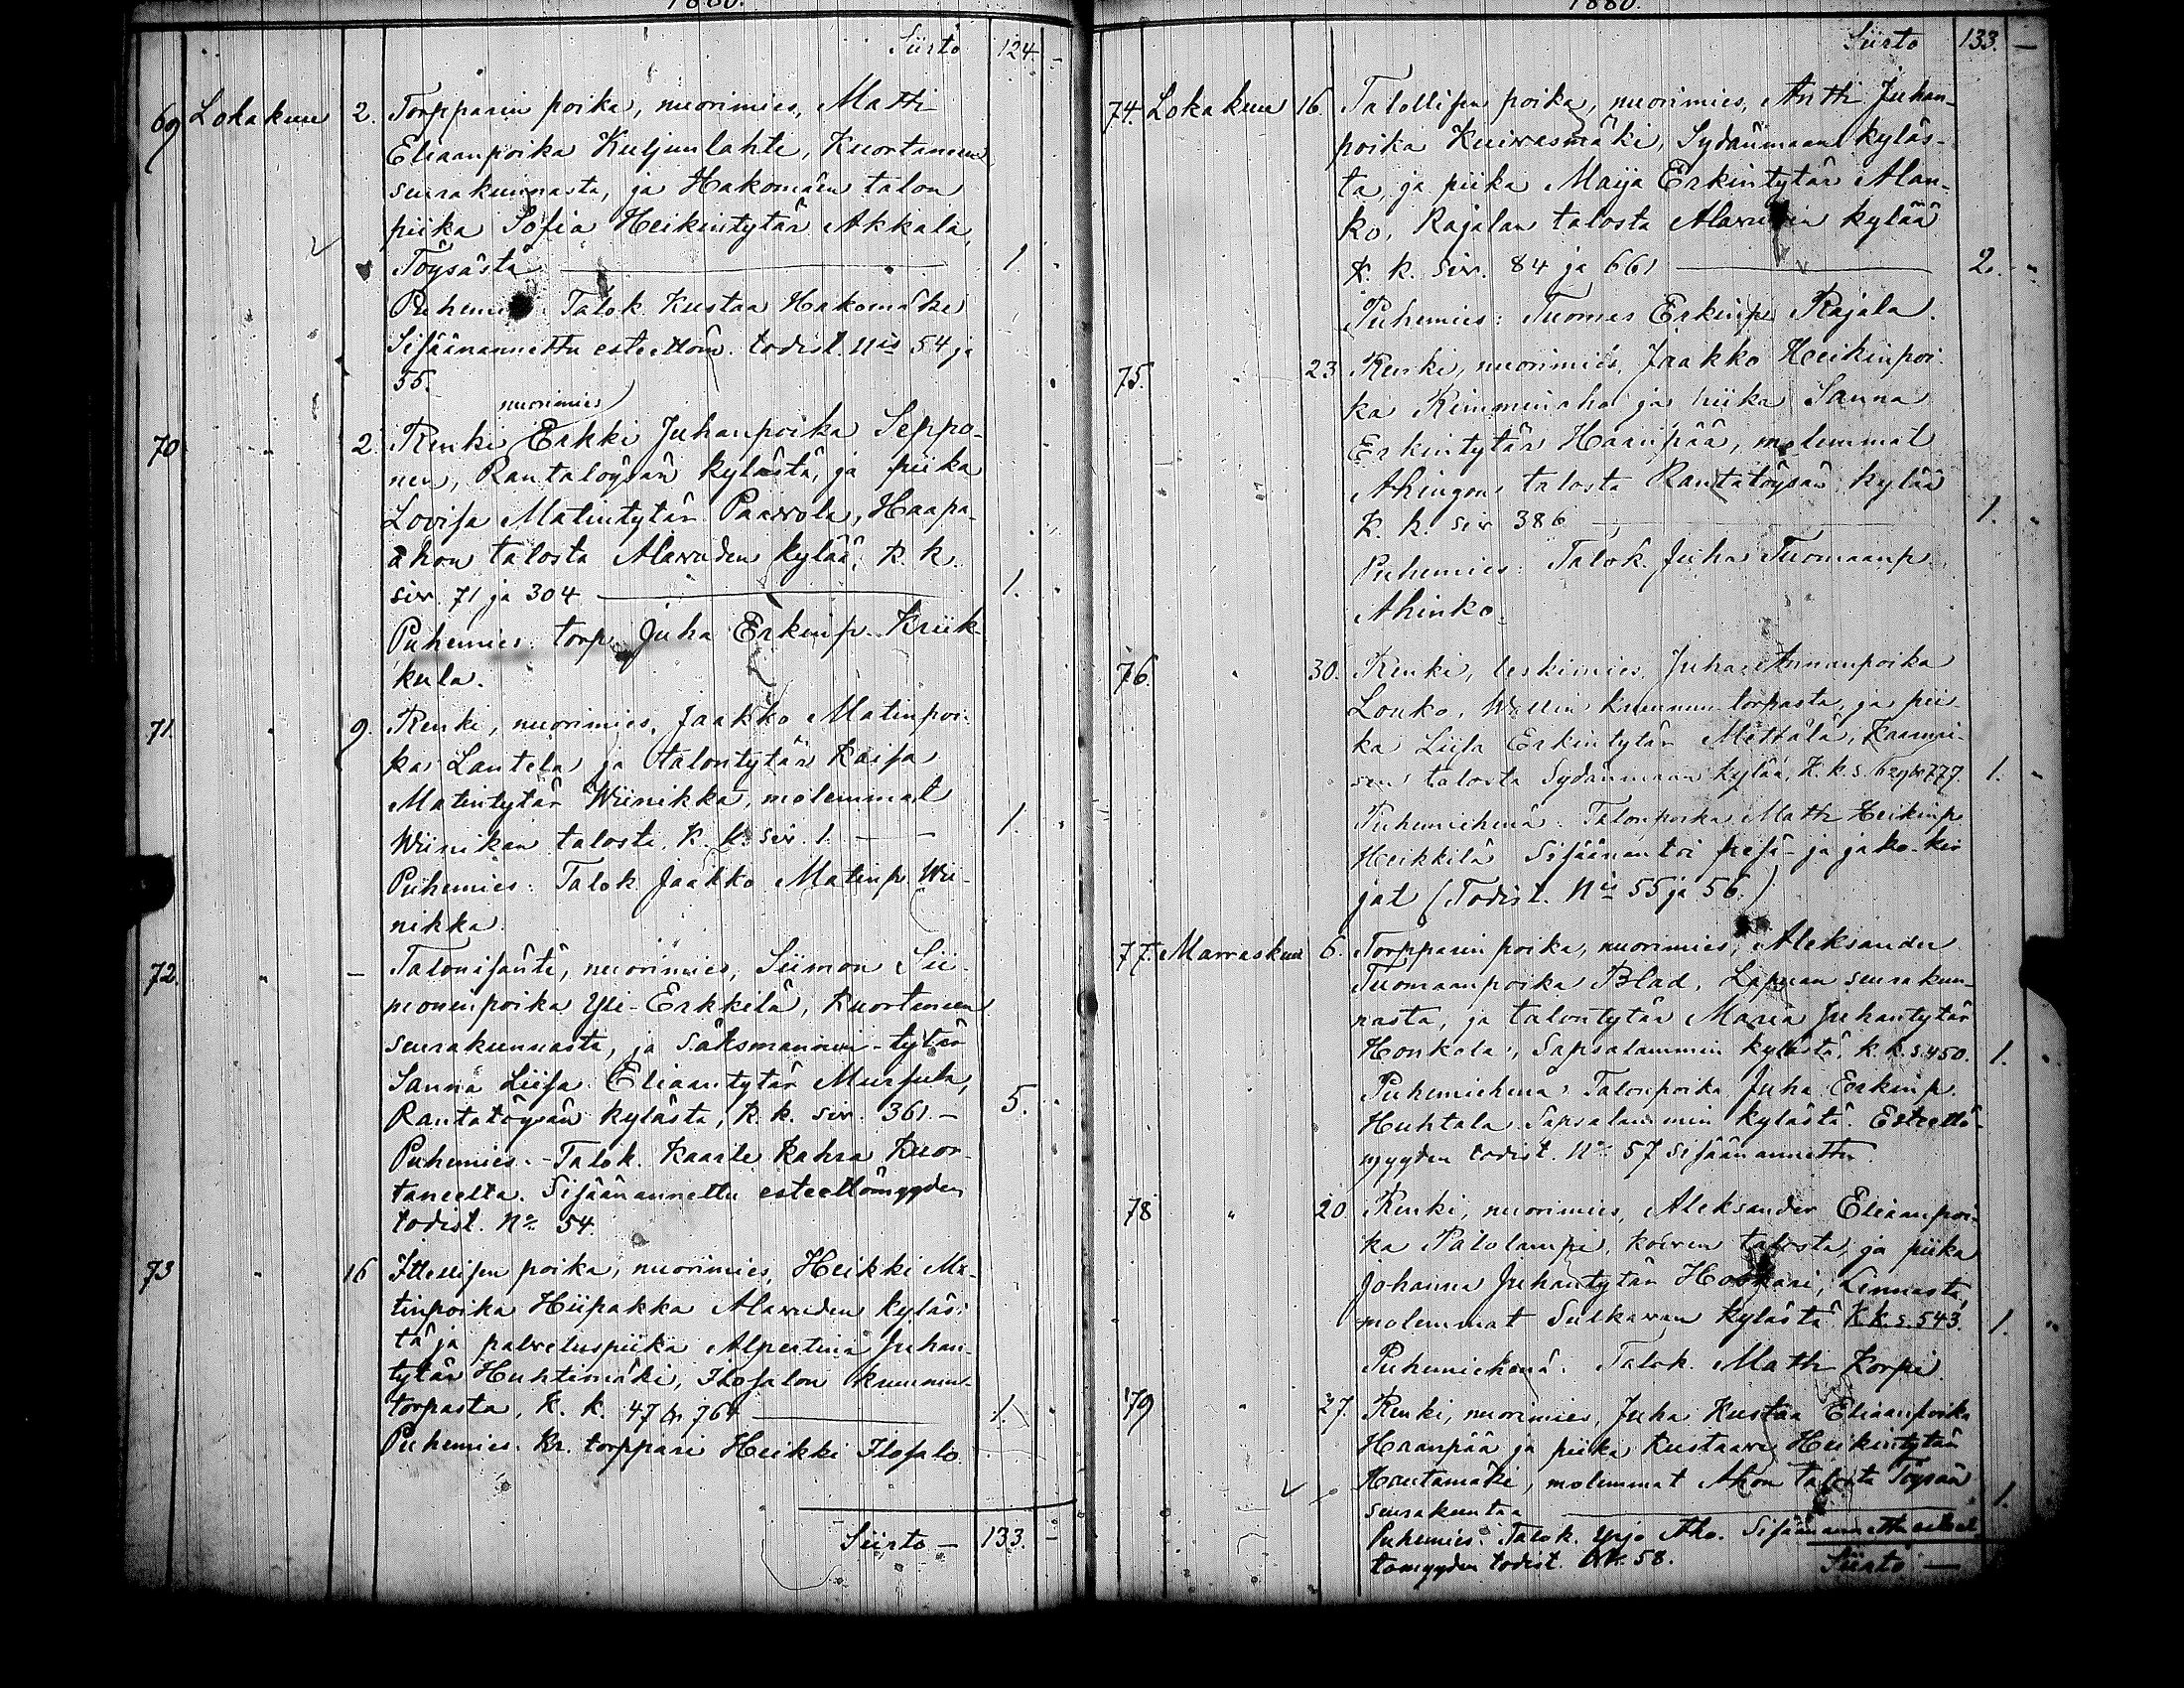 1880.
Siirto 124. -
69 Lokakuu 2. Torpparin poika, nuorimies, Matti
Eliaanpoika Kuljunlahti, Kuortaneen
seurakunnasta, ja Hakomäen talon
piika Sofia Heikintytär Akkala,
Töysästä 1.
Puhemies Talok. Kustaa Hakomäki
Sisäänannettu esteettöm. todist. Nis 54 ja
55.
nuorimies
70 " 2. Renki Erkki Juhanpoika Seppo-
nen, Rantatöysän kylästä, ja piika
Lovisa Matintytär Paavola, Haapa-
ahon talosta Alavuden kylää, K. k.
siv. 71 ja 304 1.
Puhemies: torp. Juha Erkinp. Kriik-
kula.
71. " 9. Renki, nuorimies, Jaakko Matinpoi-
ka Lantela ja talontytär Kaisa
Matintytär Wiinikka, molemmat
Wiinikan talosta, K. k. siv. 1. 1.
Puhemies: Talok. Jaakko Matinp. Wii-
nikka.
72. " - Talonisäntä, nuorimies, Siimon Sii-
monenpoika Yli-Erkkilä, Kuortaneen
seurakunnasta, ja Säksmannin-tytär
Sanna Liisa Eliaantytär Mursula,
Rantatöysän kylästä, K. k. siv. 361. - 5.
Puhemies. - Talok. Kaarle Kahra Kuor-
taneelta. Sisäänannettu esteettömyyden
todist. No 54.
73 " 16 Itsellisen poika, nuorimies, Heikki Ma-
tinpoika Hiipakka Alavuden kyläs-
tä ja palveluspiika Alpertina Juhan-
tytär Huhtimäki, Ilosalon kruunun-
torpasta, K. k. 47 & 764 1.
Puhemies. Kr. torppari Heikki Ilosalo
Siirto - 133. -
1880.
Siirto 133. -
74. Lokakuu 16. Talollisen poika, nuorimies, Antti Juhan-
poika Kuivasmäki, Sydänmaan kyläs-
tä, ja piika Maija Erkintytär Alan-
ko, Rajalan talosta Alavuden kylää
K. k. siv. 84 ja 661 2. -
Puhemies: Tuomas Erkinp. Rajala.
75. " 23 Renki, nuorimies, Jaakko Heikinpoi-
ka Rimminaho ja piika Sanna
Erkintytär Haanpää, molemmat
Ahingon talosta Rantatöysän kylää
K. k. siv 386 1.
Puhemies: Talok. Juha Tuomaanp.
Ahinko.
76. " 30. Renki, leskimies, Juha Annanpoika
Louko, kruunun torpasta, ja pii-
ka Liisa Erkintytär Mettälä,
talosta Sydänmaan kylää, K. k. s. 779. 1. -
Puhemiehenä: Talonpoika Matti Heikinp.
Heikkilä Sisäänantoi pesä- ja jako-kir
jat (Todist. Nis 55 ja 56.)
77. Marraskuu 6. Torpparin poika, nuorimies, Aleksander
Tuomaanpoika Blad, Lapuan seurakun-
nasta, ja talontytär Maria Juhantytär
Honkola, Sapsalammin kylästä, K. k. s. 450. 1.
Puhemiehenä: Talonpoika Juha Erkinp.
Huhtala Sapsalammin kylästä. Esteettö-
myyden todist. No 57 sisäänannettu.
78 " 20 Renki, nuorimies, Aleksander Eliaanpoi-
ka Palolampi, Koiven talosta, ja piika
Johanna Juhantytär, Linnasta,
molemmat Sulkavan kylästä K. k. s. 543. 1. "
Puhemiehenä: Talok. Matti Korpi.
79 " 27. Renki, nuorimies, Juha Kustaa Eliaanpoika
Haanpää ja piika Kustaava Heikintytär
Hautamäki, molemmat Ahon talosta Töysän
seurakuntaa 1.
Puhemies: Talok. Yrjö Aho. Sisäänannettu esteet-
tömyyden todist. No. 58.
Siirto -